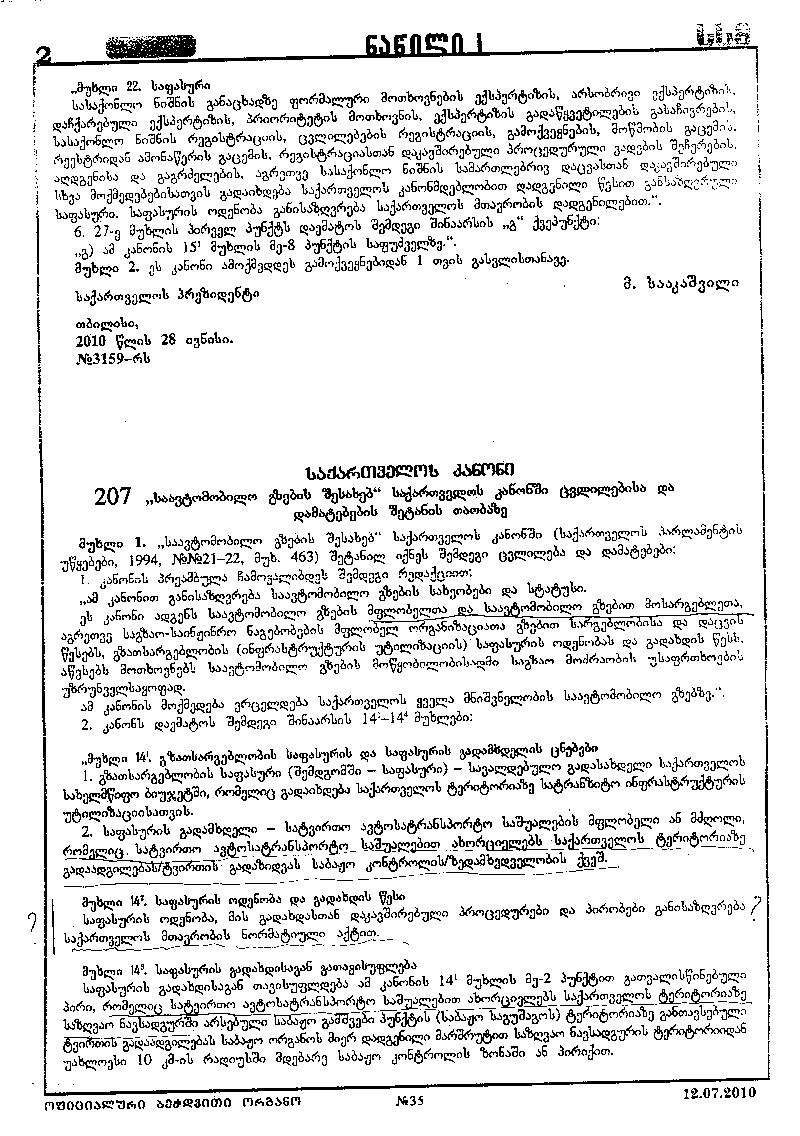 2
ნაწილი I
სსმ
„მუხლი 22. საფასური
სასაქონლო ნიშნის განაცხადზე ფორმალური მოთხოვნების ექსპერტიზის, არსობრივი ექსპერტიზის,
დაჩქარებული ექსპერტიზის, პრიორიტეტის მოთხოვნის, ექსპერტიზის გადაწყვეტილების გასაჩივრების,
სასაქონლო ნიშნის რეგისტრაციის, ცვლილებების რეგისტრაციის, გამოქვეყნების, მოწმობის გაცემის,
რეესტრიდან ამონაწერის გაცემის, რეგისტრაციასთან დაკავშირებული პროცედურული ვადების შეჩერების,
აღდგენისა და გაგრძელების, აგრეთვე სასაქონლო ნიშნის სამართლებრივ დაცვასთან დაკავშირებული
სხვა მოქმედებებისათვის გადაიხდება საქართველოს კანონმდებლობით დადგენილი წესით განსაზღვრული
საფასური. საფასურის ოდენობა განისაზღვრება საქართველოს მთავრობის დადგენილებით.“.
6. 27-ე მუხლის პირველ პუნქტს დაემატოს შემდეგი შინაარსის „გ“ ქვეპუნქტი:
„გ) ამ კანონის 15¹ მუხლის მე-8 პუნქტის საფუძველზე.“.
მუხლი 2. ეს კანონი ამოქმედდეს გამოქვეყნებიდან 1 თვის გასვლისთანავე.
საქართველოს პრეზიდენტი მ. სააკაშვილი
თბილისი,
2010 წლის 28 ივნისი.
№3159–რს
საქართველოს კანონი
207 „საავტომობილო გზების შესახებ“ საქართველოს კანონში ცვლილებისა და
დამატებების შეტანის თაობაზე
მუხლი 1. „საავტომობილო გზების შესახებ“ საქართველოს კანონში (საქართველოს პარლამენტის
უწყებები, 1994, №№21–22, მუხ. 463) შეტანილ იქნეს შემდეგი ცვლილება და დამატებები:
1. კანონის პრეამბულა ჩამოყალიბდეს შემდეგი რედაქციით:
„ამ კანონით განისაზღვრება საავტომობილო გზების სახეობები და სტატუსი.
ეს კანონი ადგენს საავტომობილო გზების მფლობელთა და საავტომობილო გზებით მოსარგებლეთა,
აგრეთვე საგზაო-საინჟინრო ნაგებობების მფლობელ ორგანიზაციათა გზებით სარგებლობისა და დაცვის
წესებს, გზათსარგებლობის (ინფრასტრუქტურის უტილიზაციის) საფასურის ოდენობას და გადახდის წესს,
აწესებს მოთხოვნებს საავტომობილო გზების მოწყობილობისადმი საგზაო მოძრაობის უსაფრთხოების
უზრუნველსაყოფად.
ამ კანონის მოქმედება ვრცელდება საქართველოს ყველა მნიშვნელობის საავტომობილო გზებზე.“.
2. კანონს დაემატოს შემდეგი შინაარსის 14¹–14⁴ მუხლები:
„მუხლი 14¹. გზათსარგებლობის საფასურის და საფასურის გადამხდელის ცნებები
1. გზათსარგებლობის საფასური (შემდგომში – საფასური) – სავალდებულო გადასახდელი საქართველოს
სახელმწიფო ბიუჯეტში, რომელიც გადაიხდება საქართველოს ტერიტორიაზე სატრანზიტო ინფრასტრუქტურის
უტილიზაციისათვის.
2. საფასურის გადამხდელი – სატვირთო ავტოსატრანსპორტო საშუალების მფლობელი ან მძღოლი,
რომელიც სატვირთო ავტოსატრანსპორტო საშუალებით ახორციელებს საქართველოს ტერიტორიაზე
გადაადგილებას/ტვირთის გადაზიდვას საბაჟო კონტროლის/ზედამხედველობის ქვეშ.
მუხლი 14². საფასურის ოდენობა და გადახდის წესი
? საფასურის ოდენობა, მის გადახდასთან დაკავშირებული პროცედურები და პირობები განისაზღვრება ?
საქართველოს მთავრობის ნორმატიული აქტით.
მუხლი 14³. საფასურის გადახდისაგან გათავისუფლება
საფასურის გადახდისაგან თავისუფლდება ამ კანონის 14¹ მუხლის მე-2 პუნქტით გათვალისწინებული
პირი, რომელიც სატვირთო ავტოსატრანსპორტო საშუალებით ახორციელებს საქართველოს ტერიტორიაზე
საზღვაო ნავსადგურში არსებული საბაჟო გამშვები პუნქტის (საბაჟო საგუშაგოს) ტერიტორიაზე განთავსებული
ტვირთის გადაადგილებას საბაჟო ორგანოს მიერ დადგენილი მარშრუტით საზღვაო ნავსადგურის ტერიტორიიდან
უახლოესი 10 კმ-ის რადიუსში მდებარე საბაჟო კონტროლის ზონაში ან პირიქით.
ოფიციალური ბეჭდვითი ორგანო №35 12.07.2010